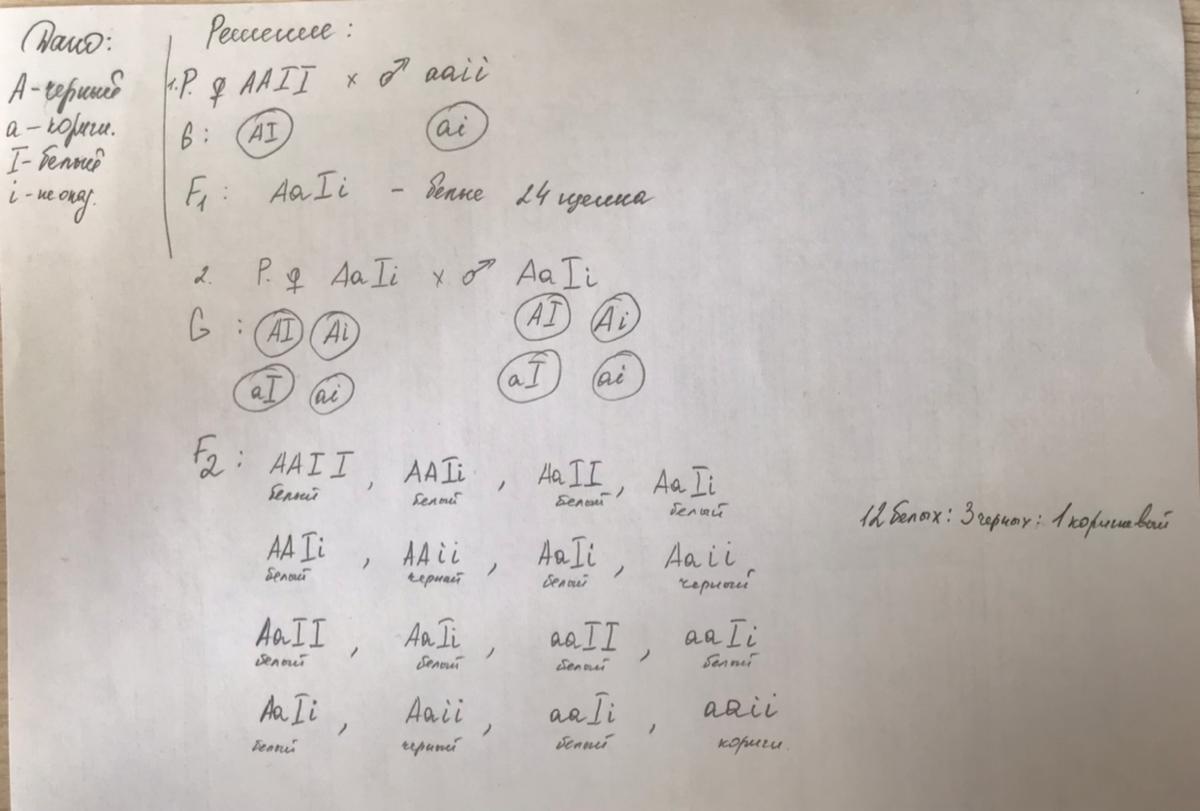 Дано:
А-черный
а-коричн.
I-белый
i-не оказ.
Решение:
1.P. ♀ AAII × ♂ aaii
G: AI ai
F₁: AaIi - белые 24 щенка
2. P. ♀ AaIi × ♂ AaIi
G: AI Ai AI Ai
aI ai aI ai
F₂: AAII, AAIi, AaII, AaIi
белый белый белый белый
12 белых: 3 черных: 1 коричневый
AAIi, AAii, AaIi, Aaii,
белый черный белый черный
AaII, AaIi, aaII, aaIi
белый белый белый белый
AaIi, Aaii, aaIi, aaii
белый черный белый коричн.